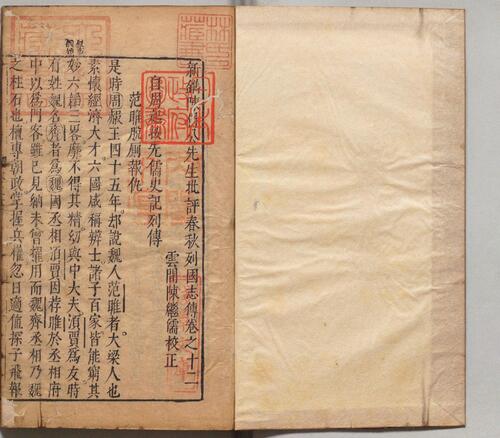 新鐫陳眉公先生批評春秋列國志傳卷之十二
雲間陳繼儒校正
自周赧按先儒史記列傳
范雎脫厠報仇
是時周赧王四十五年却說魏人范雎者大梁人也
素懷經濟大才六國咸稱辨士諸子百家皆能窮其
妙六韜三畧靡不得其精幼與中大夫須賈爲友時
有姓魏名齊者爲魏國丞相須賈因荐雎於丞相府
中以爲門客雖已見納未曾擢用而魏齊丞相乃魏
之柱石也權專朝政掌握兵權忽日適值探子飛報